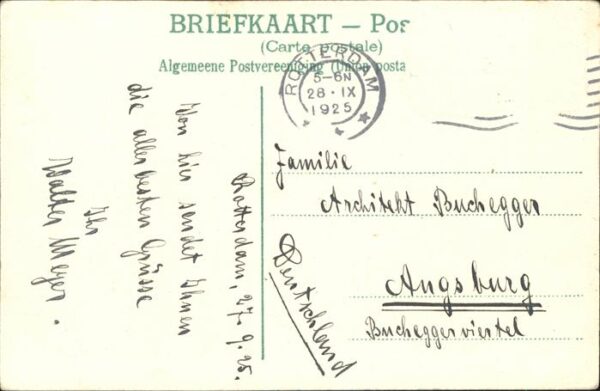 BRIEFKAART — Pos
(Carte postale)
Algemeene Postvereeniging (Union posta
ROTTERDAM
5-6N
28·IX
1925
Rotterdam, 27.9.25.
Von hier sendet Ihnen
die allerbesten Grüsse
Ihr
Walter Meyer.
Familie
Architekt Buchegger
Augsburg
Bucheggerviertel
Deutschland